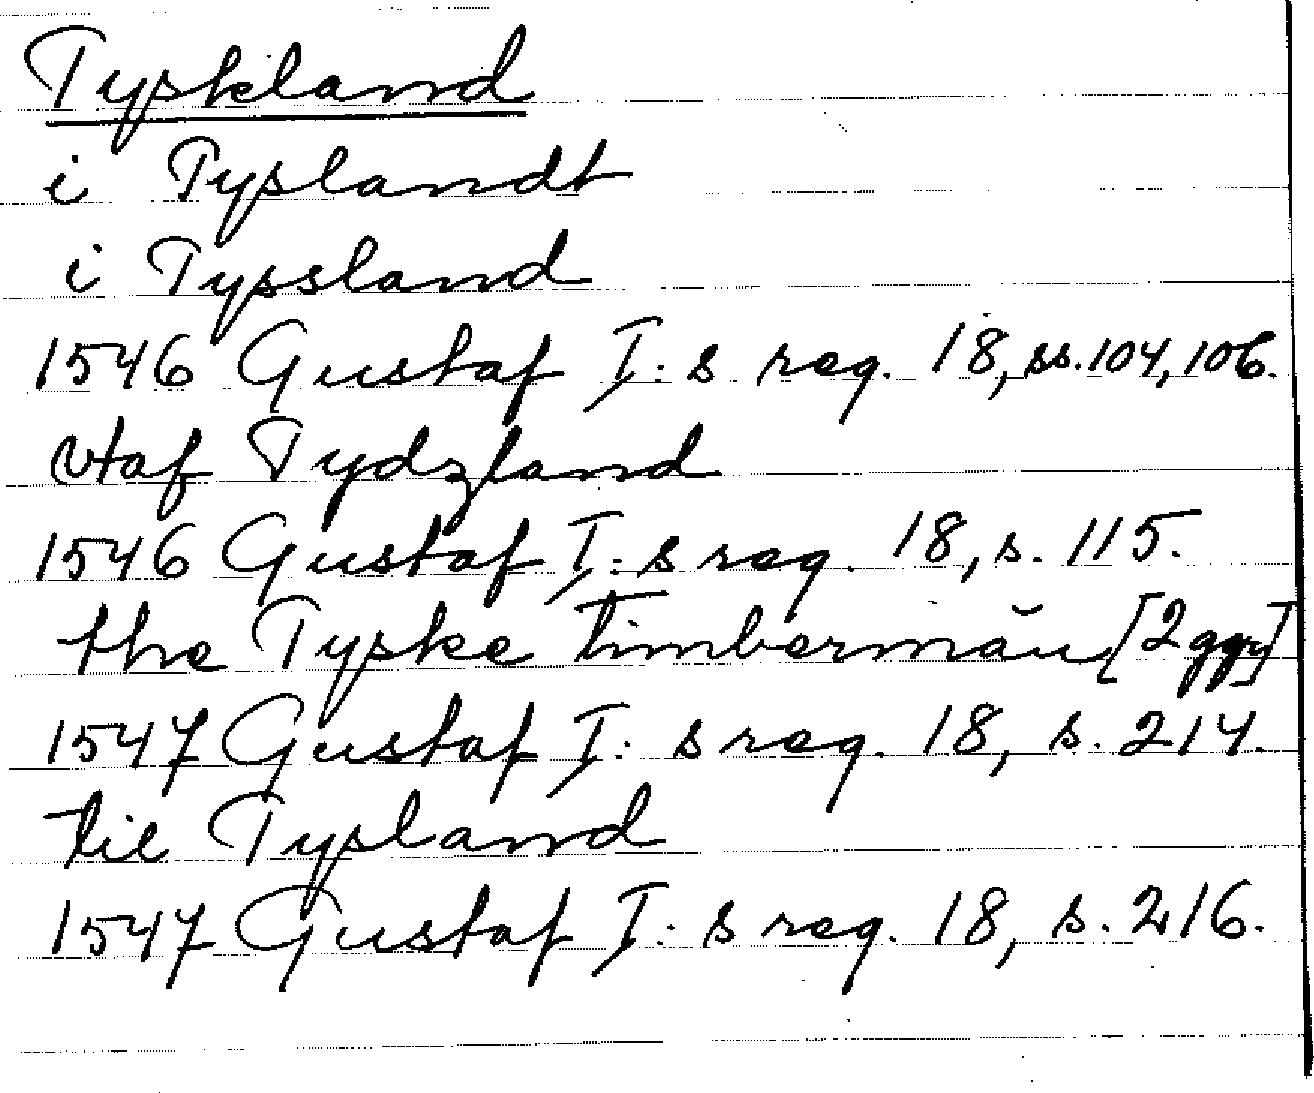 Tyskland
i Tyslandt
i Tyssland
1546 Gustaf I:s reg. 18, ss. 104, 106.
vtaf Tydzland
1546 Gustaf I:s reg. 18, s. 115.
the Tyske timbermău [2 ggr]
1547 Gustaf I:s reg. 18, s. 214.
til Tysland
1547 Gustaf I:s reg. 18, s. 216.